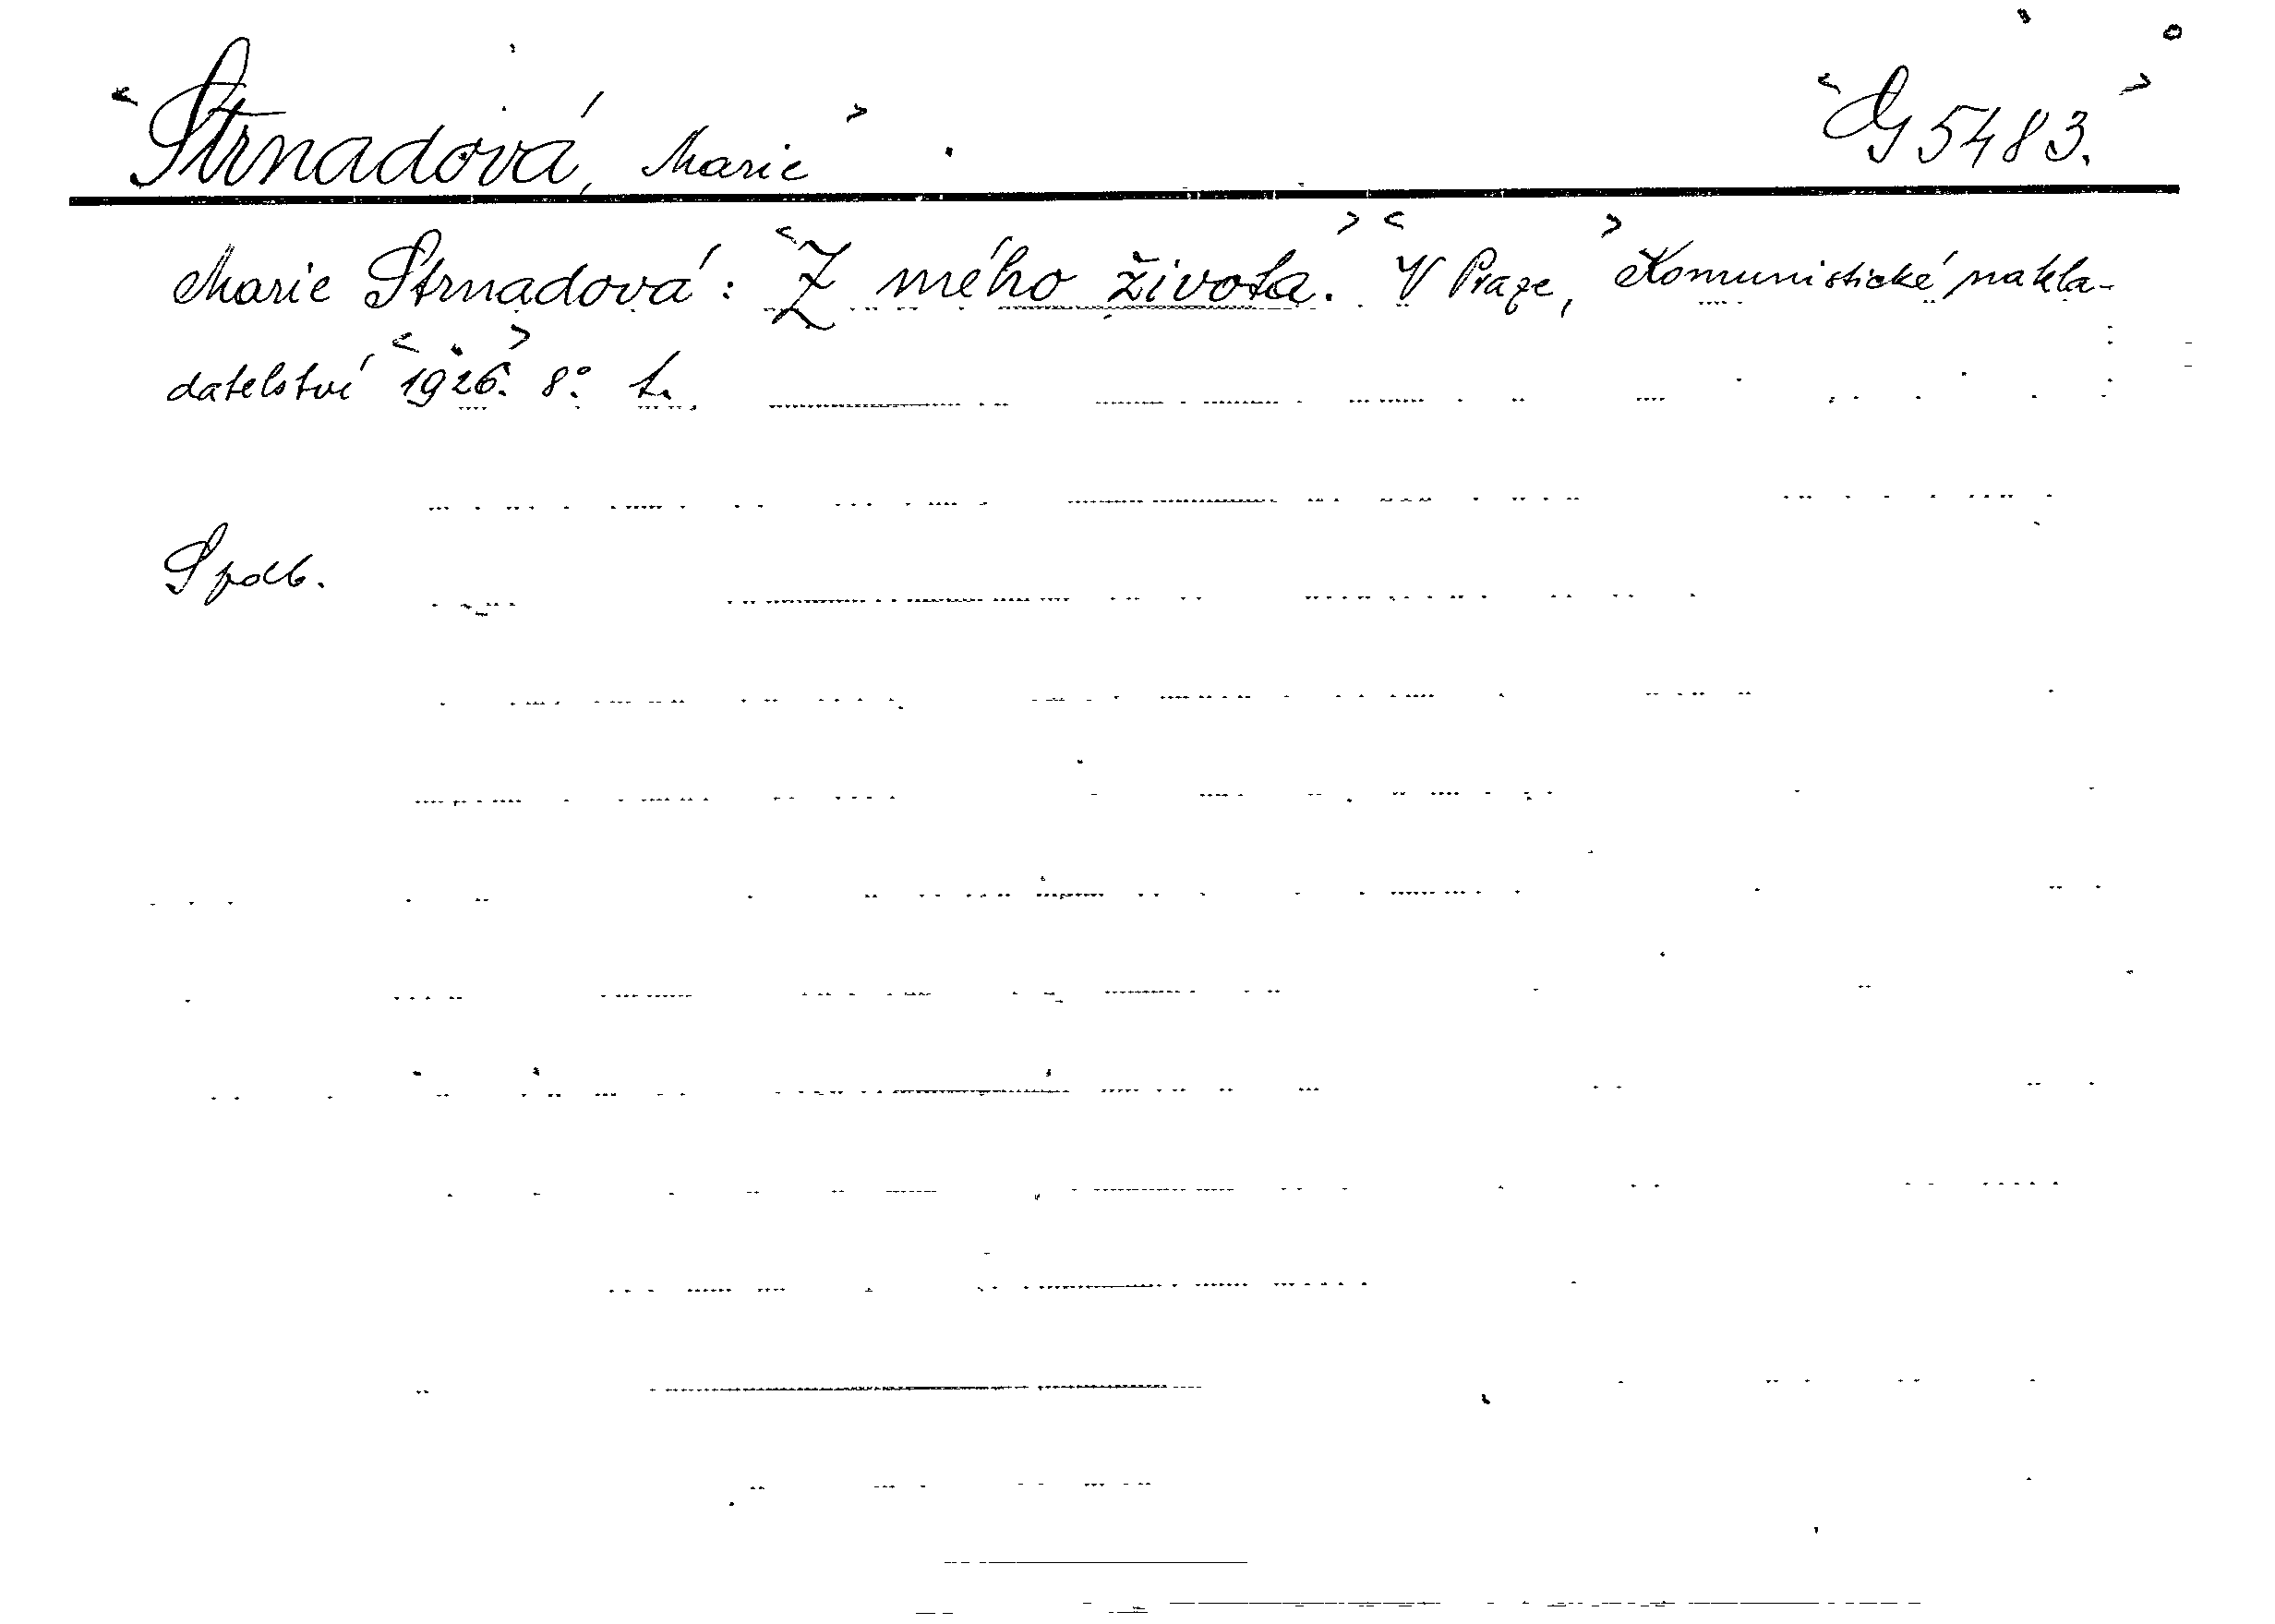 Strnadová, Marie G 5483.
Marie Strnadová: Z mého života. V Praze, Komunistické nakla-
datelství 1926. 8°. t.
Spdb.